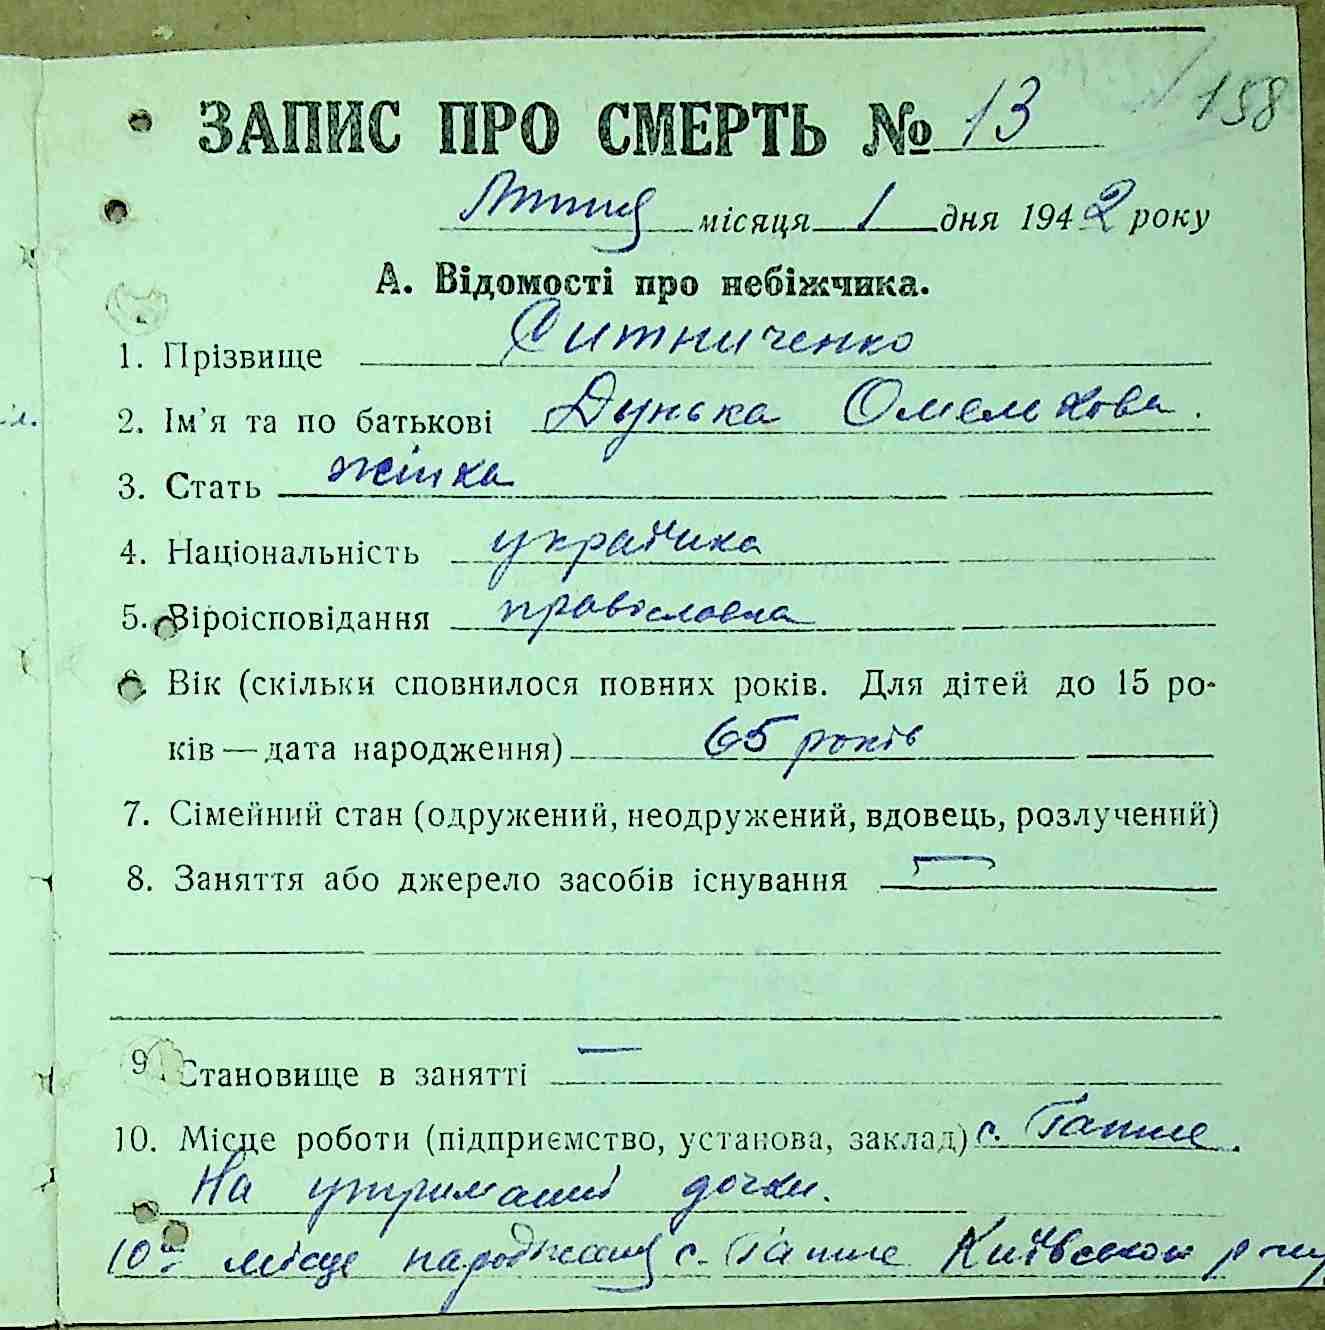 158
ЗАПИС ПРО СМЕРТЬ № 13
Липня місяця 1 дня 1942 року
А. Відомості про небіжчика.
1. Прізвище Ситниченко
2. Ім'я та по батькові Дунька Омелькова.
3. Стать жінка
4. Національність українка
5. Віроісповідання православна
6. Вік (скільки сповнилося повних років. Для дітей до 15 ро-
ків — дата народження) 65 років
7. Сімейний стан (одружений, неодружений, вдовець, розлучений)
8. Заняття або джерело засобів існування —
9. Становище в занятті —
10. Місце роботи (підприємство, установа, заклад) с. Гатне
На утриманні дочки.
10а місце народження с. Гатне Київської